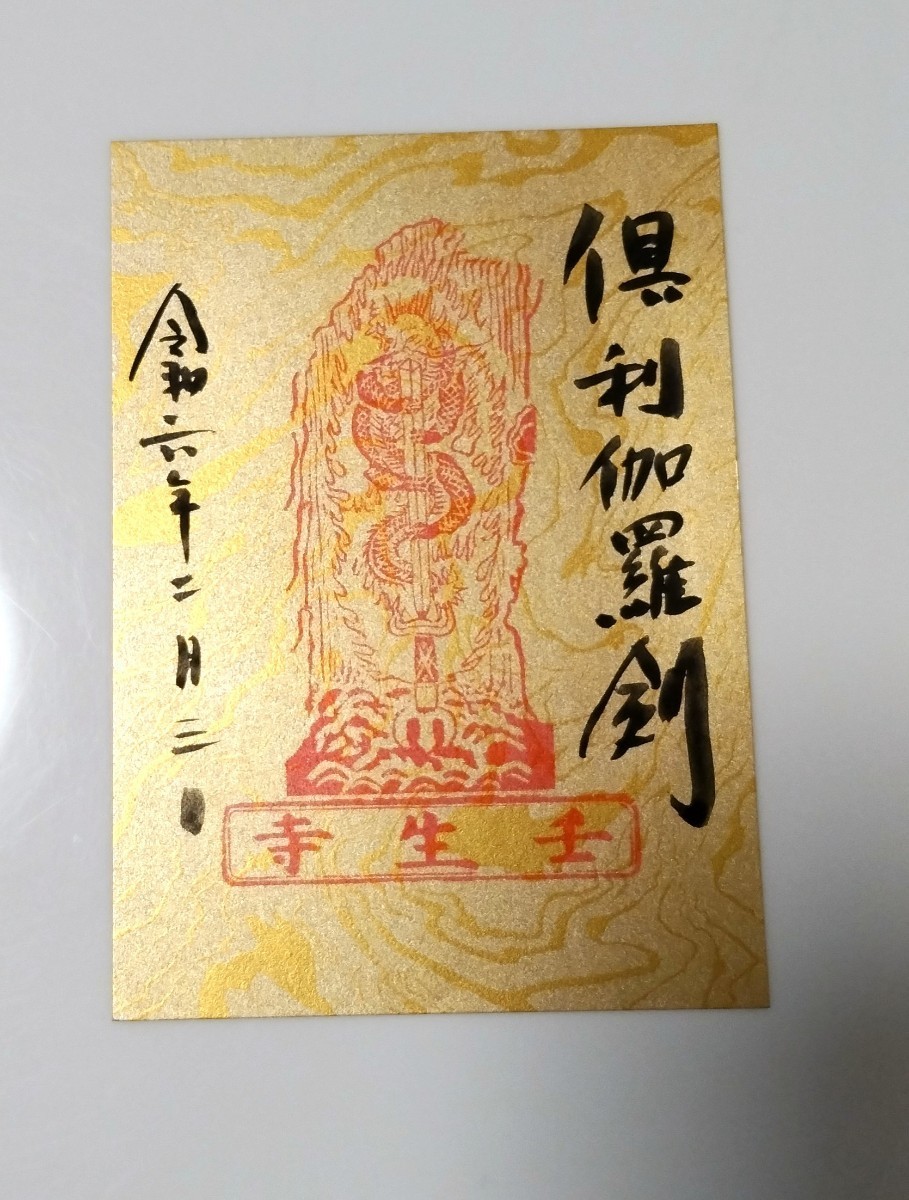 倶利伽羅剣
令和六年二月三日
壬生寺